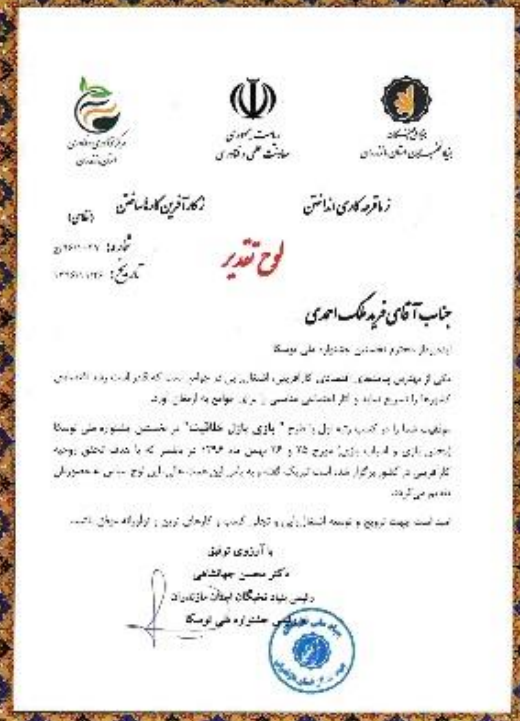 بنیاد نخبگان استان مازندران
ریاست جمهوری
معاونت علمی و فناوری
استان مازندران
ز ما قرعه کاری انداختن
ز کارآفرین کارها ساختن
(نظامی)
شماره:
تاریخ:
لوح تقدیر
جناب آقای فرید ملک احمدی
ایده‌پرداز محترم نخستین جشنواره ملی نوسکا
یکی از مهمترین پیامدهای اقتصادی کارآفرینی، اشتغال‌زایی در جوامع است که قادر است رشد اقتصادی
کشورها را تسریع نماید و آثار اجتماعی مناسبی را برای جوامع به ارمغان آورد.
موفقیت شما را در کسب رتبه اول با طرح " بازی پازل خلاقیت" در نخستین جشنواره ملی نوسکا
(بخش بازی و اسباب بازی) مورخ ۲۵ و ۲۶ بهمن ماه ۱۳۹۶ در بابلسر که با هدف تحقق روحیه
کارآفرینی در کشور برگزار شده است تبریک گفته و به پاس این همت عالی، این لوح سپاس به حضورتان
تقدیم می‌گردد.
امید است جهت ترویج و توسعه اشتغال‌زایی و تجلی کسب و کارهای نوین و نوآورانه موفق باشید.
با آرزوی توفیق
دکتر محسن جهانشاهی
رئیس بنیاد نخبگان استان مازندران
و رئیس جشنواره ملی نوسکا